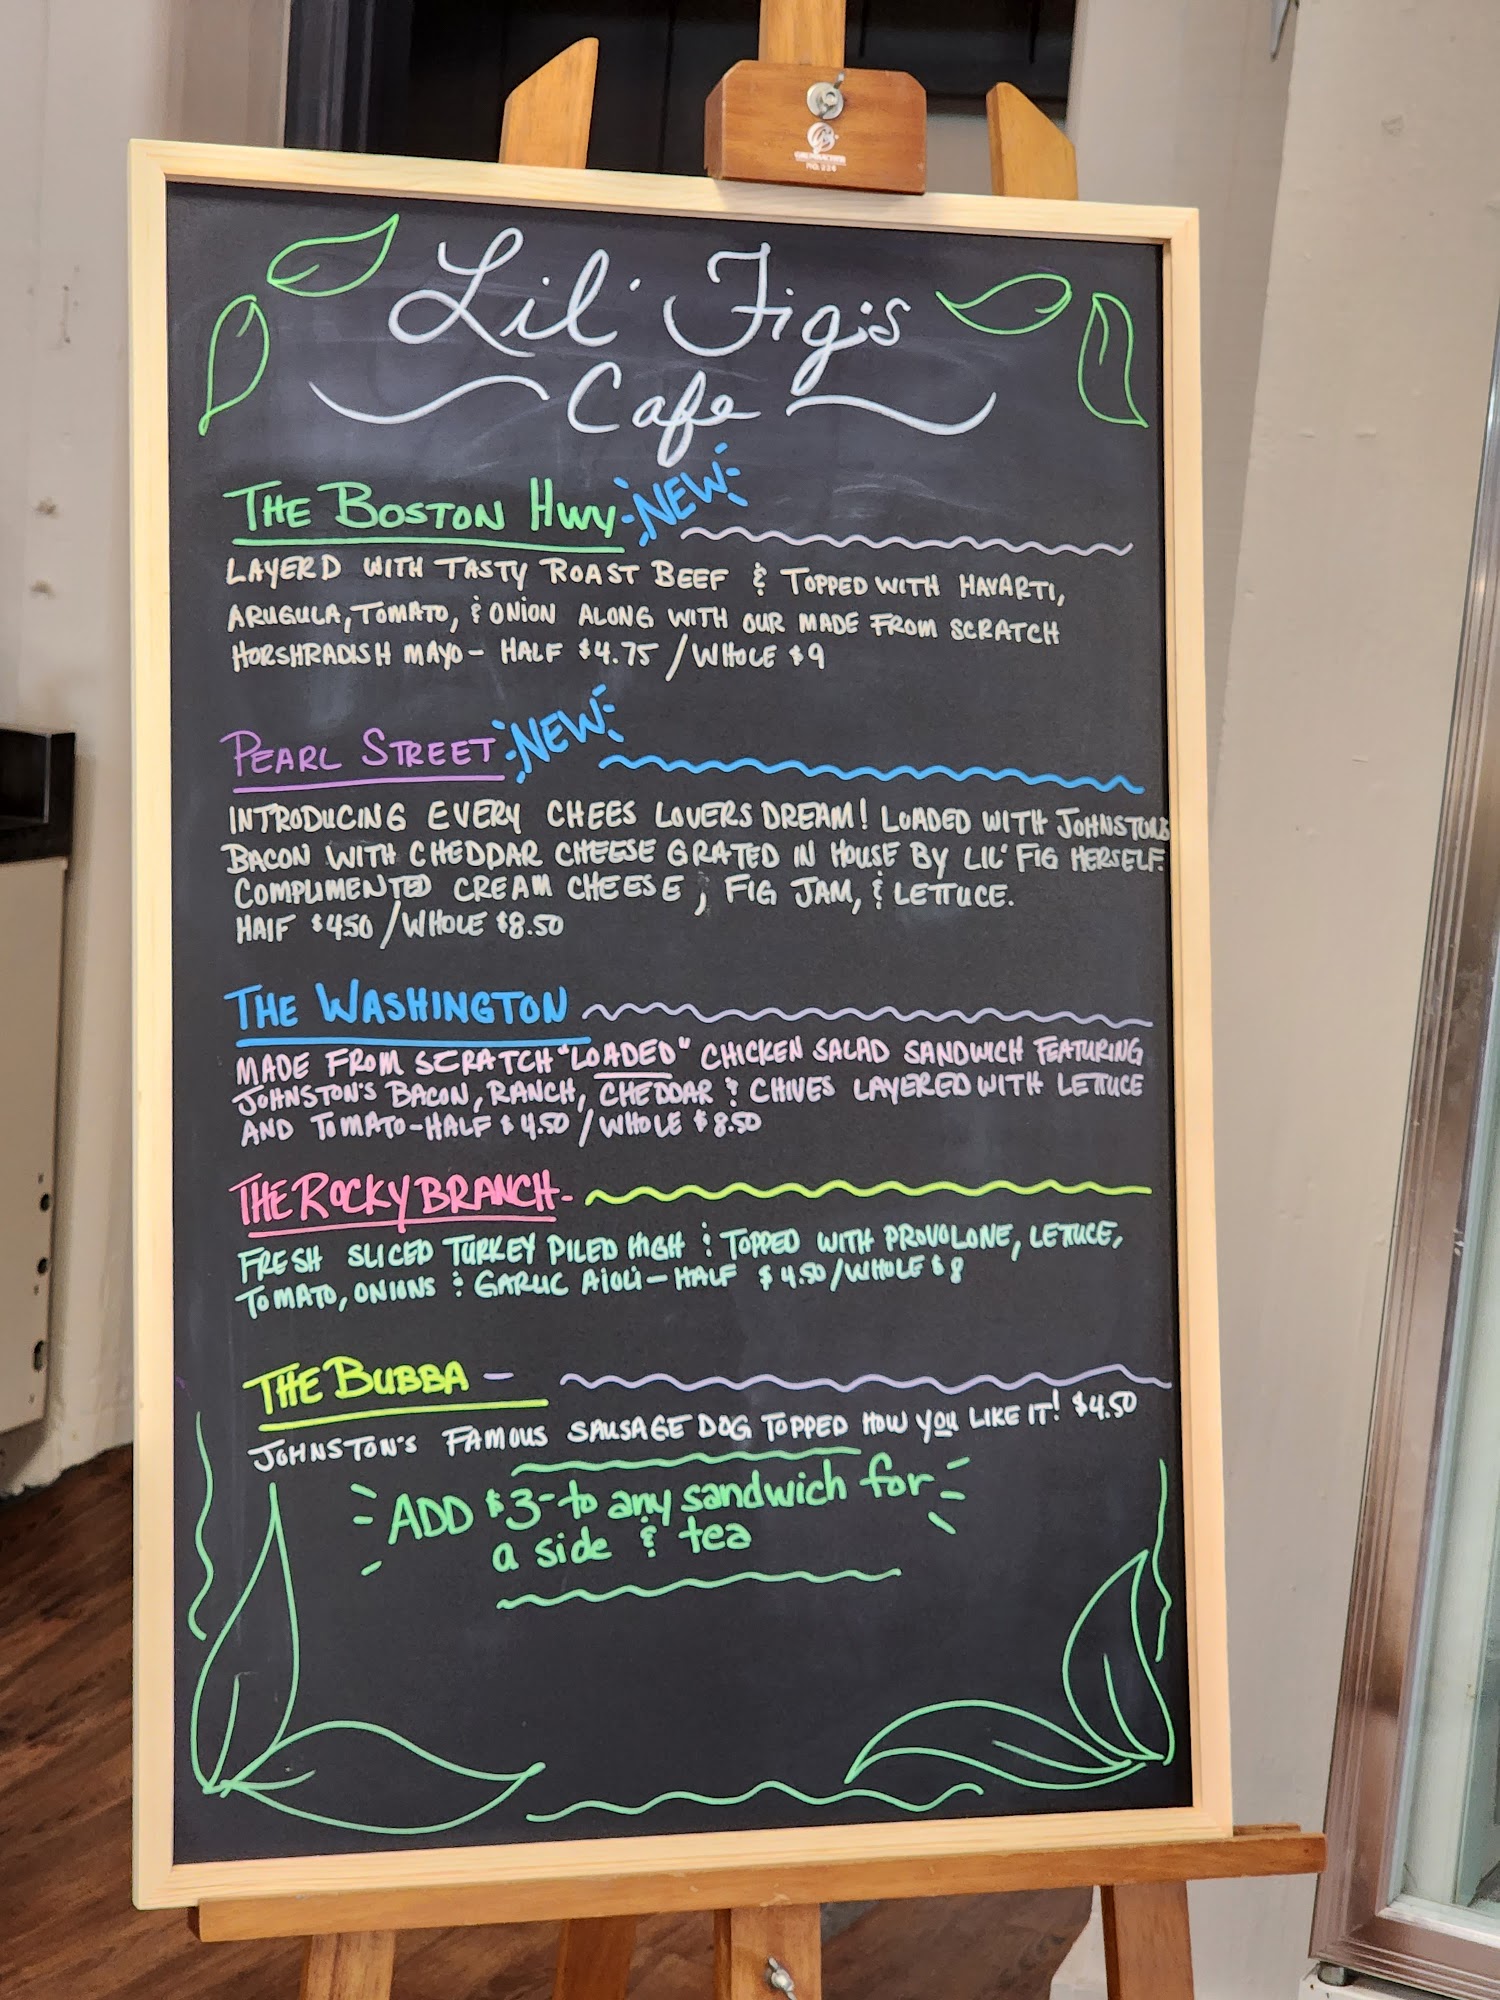 GRUMBACHER
Lil' Fig's
Cafe
THE BOSTON HWY NEW
LAYERD WITH TASTY ROAST BEEF & TOPPED WITH HAVARTI,
ARUGULA, TOMATO, & ONION ALONG WITH OUR MADE FROM SCRATCH
HORSHRADISH MAYO - HALF $4.75 / WHOLE $9
PEARL STREET NEW
INTRODUCING EVERY CHEES LOVERS DREAM! LOADED WITH JOHNSTONS
BACON WITH CHEDDAR CHEESE GRATED IN HOUSE BY LIL' FIG HERSELF.
COMPLIMENTED CREAM CHEESE, FIG JAM, & LETTUCE.
HALF $4.50 / WHOLE $8.50
THE WASHINGTON
MADE FROM SCRATCH "LOADED" CHICKEN SALAD SANDWICH FEATURING
JOHNSTON'S BACON, RANCH, CHEDDAR & CHIVES LAYERED WITH LETTUCE
AND TOMATO - HALF $4.50 / WHOLE $8.50
THE ROCKY BRANCH -
FRESH SLICED TURKEY PILED HIGH & TOPPED WITH PROVOLONE, LETTUCE,
TOMATO, ONIONS & GARLIC AIOLI - HALF $4.50 / WHOLE $8
THE BUBBA -
JOHNSTON'S FAMOUS SAUSAGE DOG TOPPED HOW YOU LIKE IT! $4.50
ADD $3 - to any sandwich for
a side & tea